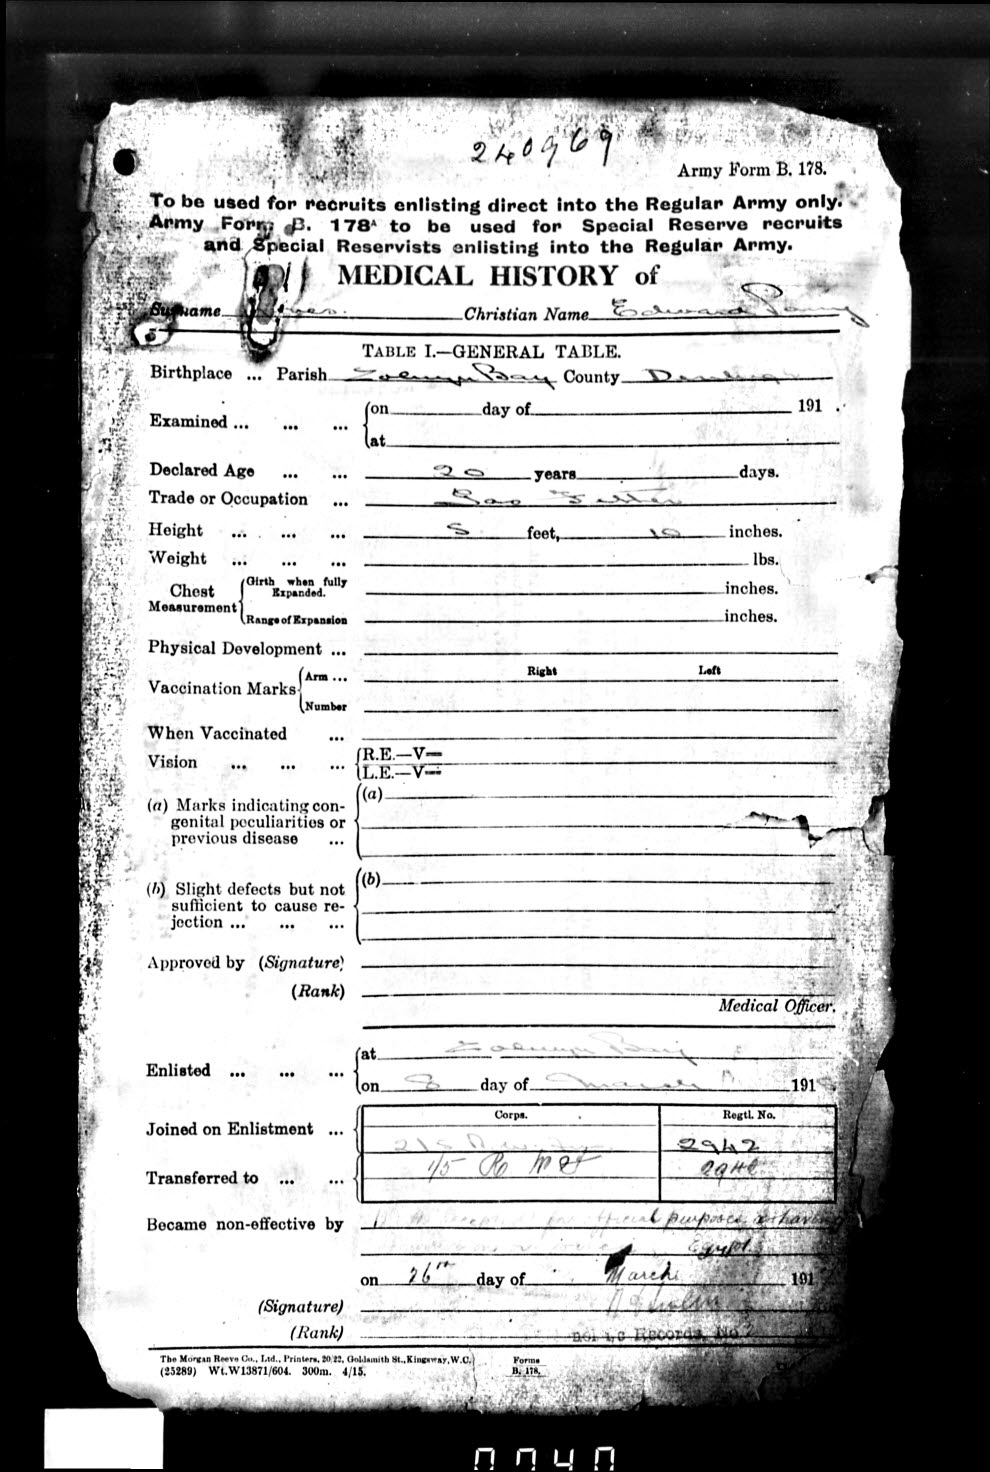 240969
Army Form B. 178.
To be used for recruits enlisting direct into the Regular Army only.
Army Form B. 178A to be used for Special Reserve recruits
and Special Reservists enlisting into the Regular Army.
MEDICAL HISTORY of
Surname Christian Name Edward Parry
TABLE I.—GENERAL TABLE.
Birthplace ... Parish Colwyn Bay County Denbigh
Examined ... ... ... on day of 191 .
at
Declared Age ... ... 20 years days.
Trade or Occupation ... Gas Fitter
Height ... ... ... 5 feet, 10 inches.
Weight ... ... ... lbs.
Chest Measurement Girth when fully Expanded. inches.
Range of Expansion inches.
Physical Development ...
Right Left
Vaccination Marks Arm ...
Number
When Vaccinated ...
Vision ... ... ... R.E.—V=
L.E.—V=
(a) Marks indicating con- (a)
genital peculiarities or
previous disease ...
(b) Slight defects but not (b)
sufficient to cause re-
jection ... ... ...
Approved by (Signature)
(Rank)
Medical Officer.
Enlisted ... ... ... at Colwyn Bay
on 8 day of March 191
Corps. Regtl. No.
Joined on Enlistment ... 2/5 2942
Transferred to ... ... 1/5 R W F 2942
Became non-effective by for official purposes having
Egypt
on 26th day of March 191
(Signature)
(Rank) Records, No 2
The Morgan Reeve Co., Ltd., Printers, 20/22, Goldsmith St., Kingsway, W.C.
(25289) Wt. W13871/604. 300m. 4/15.
Forms
B. 178.
0040